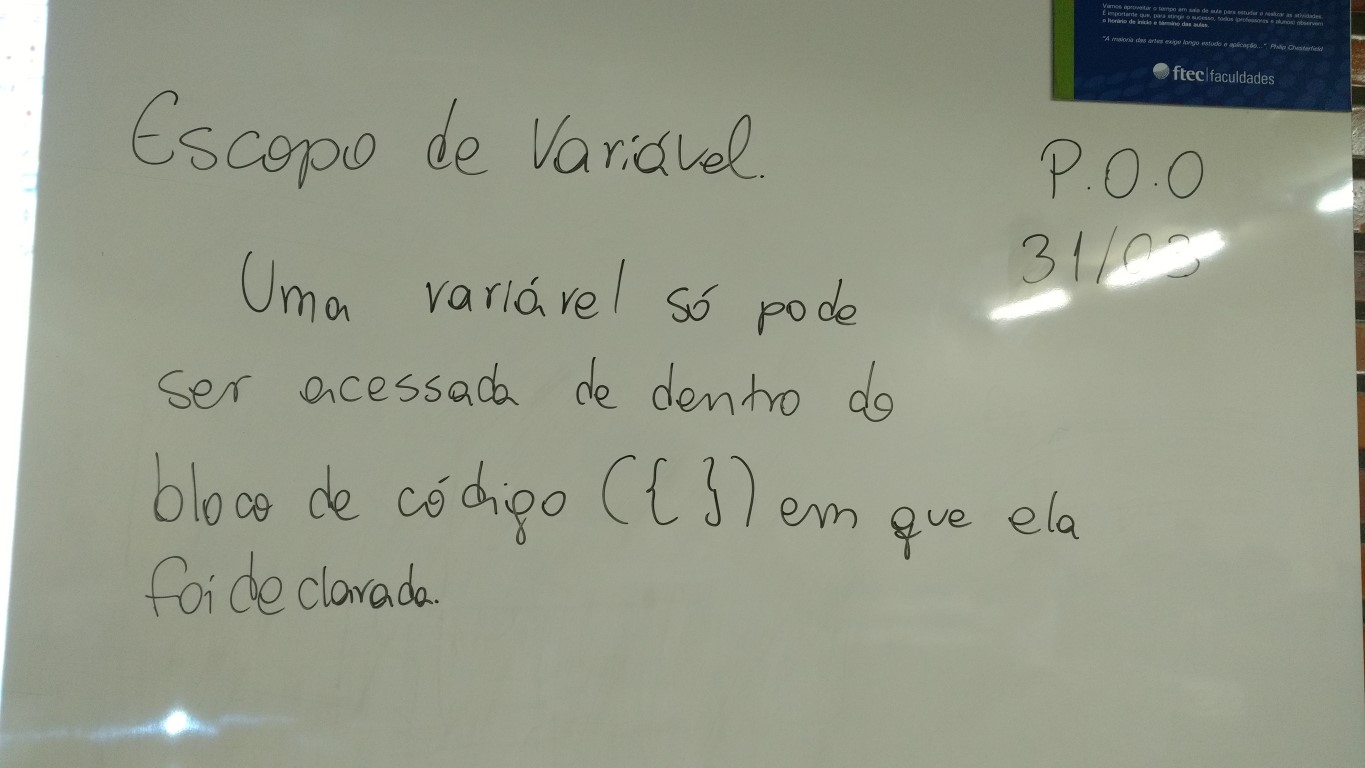 Vamos aproveitar o tempo em sala de aula para estudar e realizar as atividades.
É importante que, para atingir o sucesso, todos (professores e alunos) observem
o horário de início e término das aulas.
"A maioria das artes exige longo estudo e aplicação..." Philip Chesterfield
ftec|faculdades
Escopo de Variável.
P.O.O
31/03
Uma variável só pode
ser acessada de dentro do
bloco de código ({ }) em que ela
foi declarada.